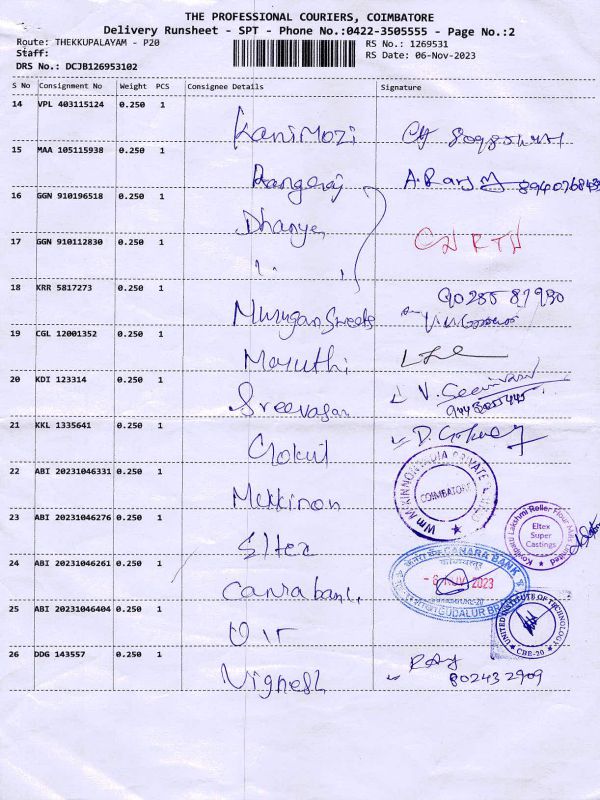 THE PROFESSIONAL COURIERS, COIMBATORE
Delivery Runsheet - SPT - Phone No.:0422-3505555 - Page No.:2
Route: THEKKUPALAYAM - P20 RS No.: 1269531
Staff: RS Date: 06-Nov-2023
DRS No.: DCJB126953102
S No Consignment No Weight PCS Consignee Details Signature
14 VPL 403115124 0.250 1 Kanimozi
15 MAA 105115938 0.250 1 Rangaraj
16 GGN 910196518 0.250 1 Dhanya
17 GGN 910112830 0.250 1
18 KRR 5817273 0.250 1 Murugan Sweets
19 CGL 12001352 0.250 1 Maruthi
20 KDI 123314 0.250 1 Sreevasan V.
21 KKL 1335641 0.250 1 Gokul D.
22 ABI 20231046331 0.250 1 Mckkinon
Wm MCKINNON INDIA PRIVATE LIMITED
COIMBATORE
23 ABI 20231046276 0.250 1 Eltex
Lakshmi Roller Flour Mills Limited
Eltex
Super
Castings
24 ABI 20231046261 0.250 1 Canra bank
CANARA BANK
NOV 2023
GUDALUR
25 ABI 20231046404 0.250 1
UNITED INSTITUTE OF TECHNOLOGY
CBE-20
26 DDG 143557 0.250 1 Vignesh
802432909